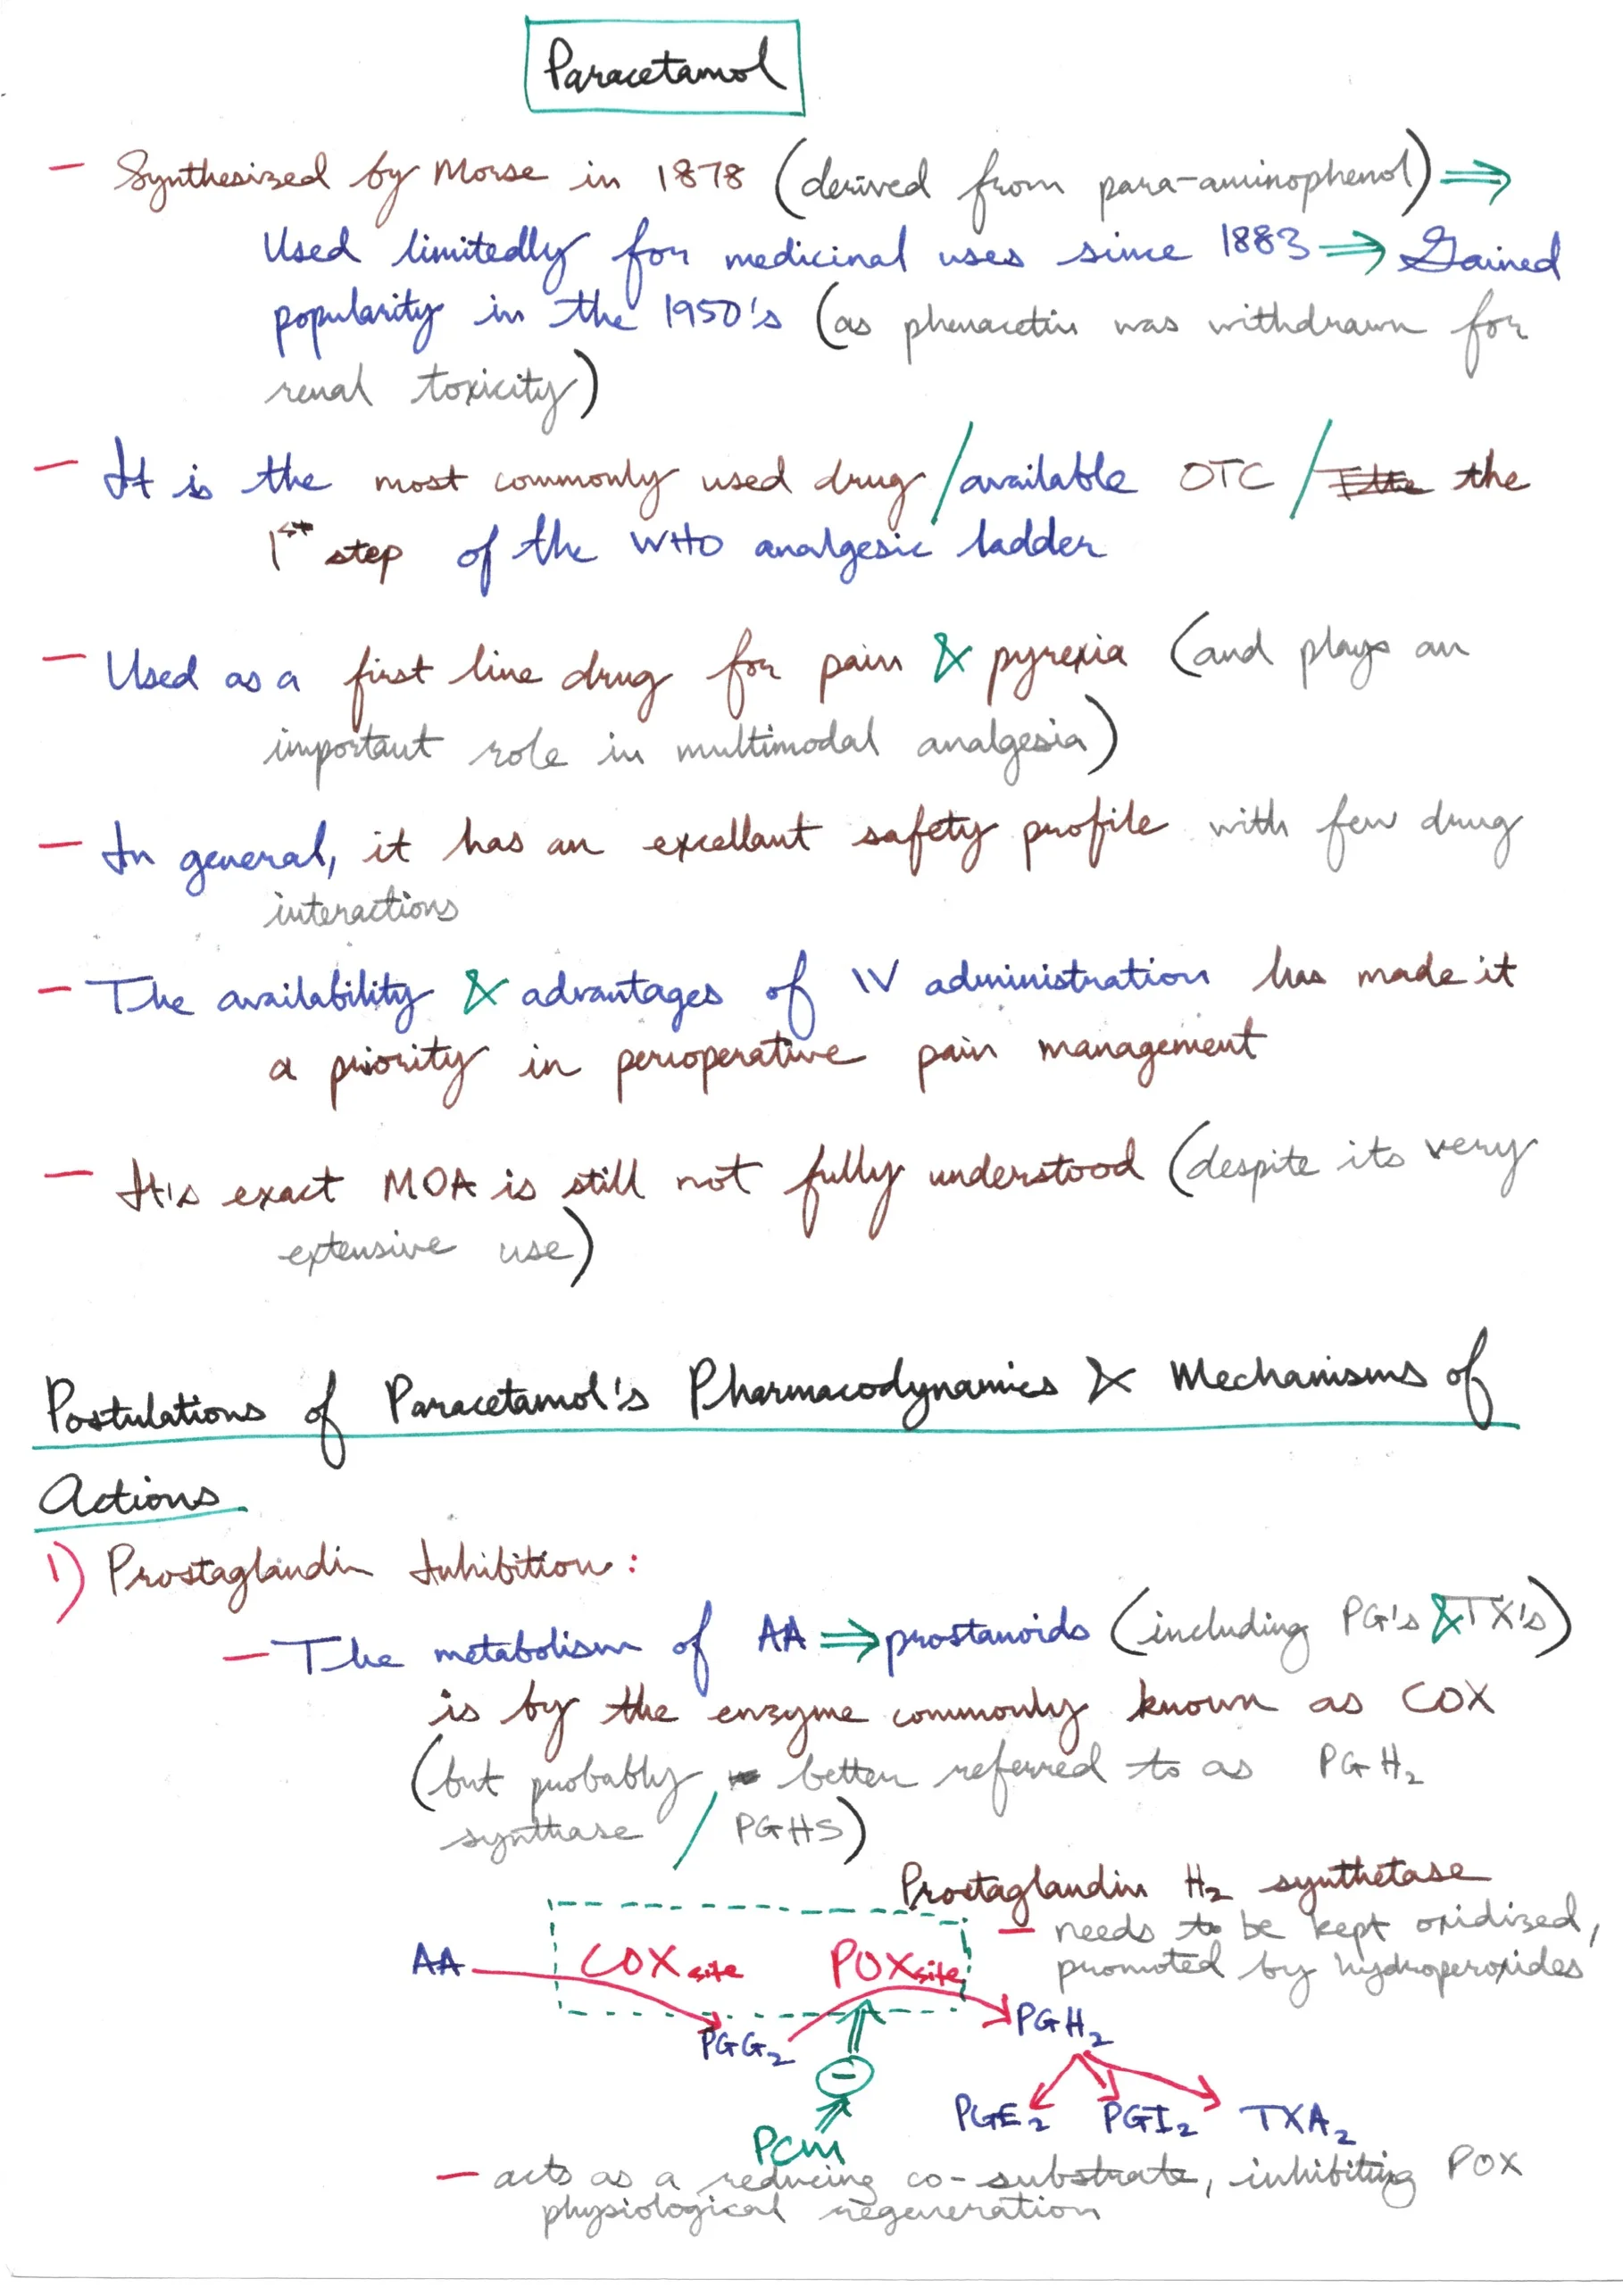 Paracetamol
— Synthesized by Morse in 1878 (derived from para-aminophenol) ⇒
Used limitedly for medicinal uses since 1883 ⇒ Gained
popularity in the 1950's (as phenacetin was withdrawn for
renal toxicity)
— It is the most commonly used drug / available OTC / the
1st step of the WHO analgesic ladder
— Used as a first line drug for pain & pyrexia (and plays an
important role in multimodal analgesia)
— In general, it has an excellant safety profile with few drug
interactions
— The availability & advantages of IV administration has made it
a priority in perioperative pain management
— It's exact MOA is still not fully understood (despite its very
extensive use)
Postulations of Paracetamol's Pharmacodynamics & Mechanisms of
Actions
1) Prostaglandin Inhibition:
— The metabolism of AA ⇒ prostanoids (including PG's & TX's)
is by the enzyme commonly known as COX
(but probably better referred to as PGH2
synthase / PGHS)
Prostaglandin H2 synthetase
— needs to be kept oxidized,
promoted by hydroperoxides
AA COX site POX site
PGG2 PGH2
PGE2 PGI2 TXA2
PCM
— acts as a reducing co-substrate, inhibiting POX
physiological regeneration